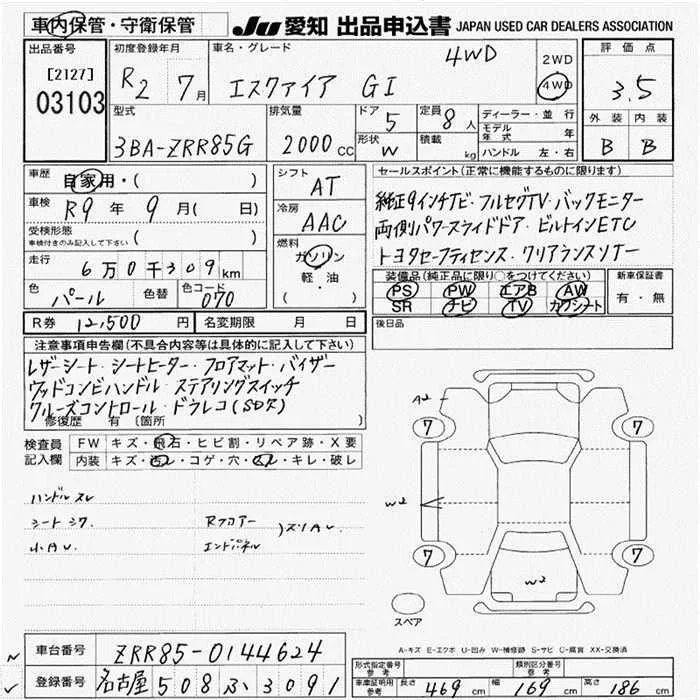 車内保管・守衛保管 Ju 愛知 出品申込書 JAPAN USED CAR DEALERS ASSOCIATION
出品番号 初度登録年月 車名・グレード 評価点
[2127] R2 7月 エスクァイア GI 4WD 2WD 4WD 3.5
03103
型式 排気量 ドア 定員 ディーラー・並行 外装 内装
3BA-ZRR85G 2000cc 5 8人 モデル年式 年 B B
形状 W 積載 kg ハンドル 左・右
車歴 自家用・( ) シフト AT セールスポイント(正常に機能するものに限ります)
車検 R9年 9月( 日) 冷房 AAC 純正9インチナビ・フルセグTV・バックモニター
受検形態 ( ) 両側パワースライドドア・ビルトインETC
車検付きのみ記入して下さい 燃料 ガソリン 軽・油 ( ) トヨタセーフティセンス・クリアランスソナー
走行 6万0千309km 装備品(純正品に限り○をつけてください) 新車保証書
色 パール 色替 色コード 070 PS PW エアB AW 有・無
SR ナビ TV カワシート
R券 12,500円 名変期限 月 日 後日品
注意事項申告欄(不具合内容等は具体的に記入して下さい)
レザーシート・シートヒーター・フロアマット・バイザー
ウッドコンビハンドル・ステアリングスイッチ
クルーズコントロール・ドラレコ(SDヌ)
修復歴 有 〔箇所 〕
検査員記入欄 FW キズ・飛石・ヒビ割・リペア跡・X要
内装 キズ・汚レ・コゲ・穴・スレ・キレ・破レ
A2
7 7
W2
7 7
W2
ハンドル スレ
シート シワ Rフロアー
小AU. エンドパネル )ズリAU.
スペア
A-キズ E-エクボ U-凹み W-補修跡 S-サビ C-腐食 XX-交換済
車台番号 ZRR85-0144624
登録番号 名古屋 508 ふ 3091
形式指定番号 参考 類別区分番号 参考
車庫証明用 参考 長さ 469cm 幅 169cm 高さ 186cm